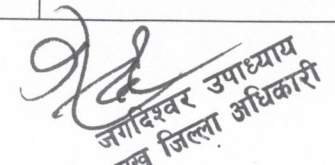 जगदिश्वर उपाध्याय
जिल्ला अधिकारी